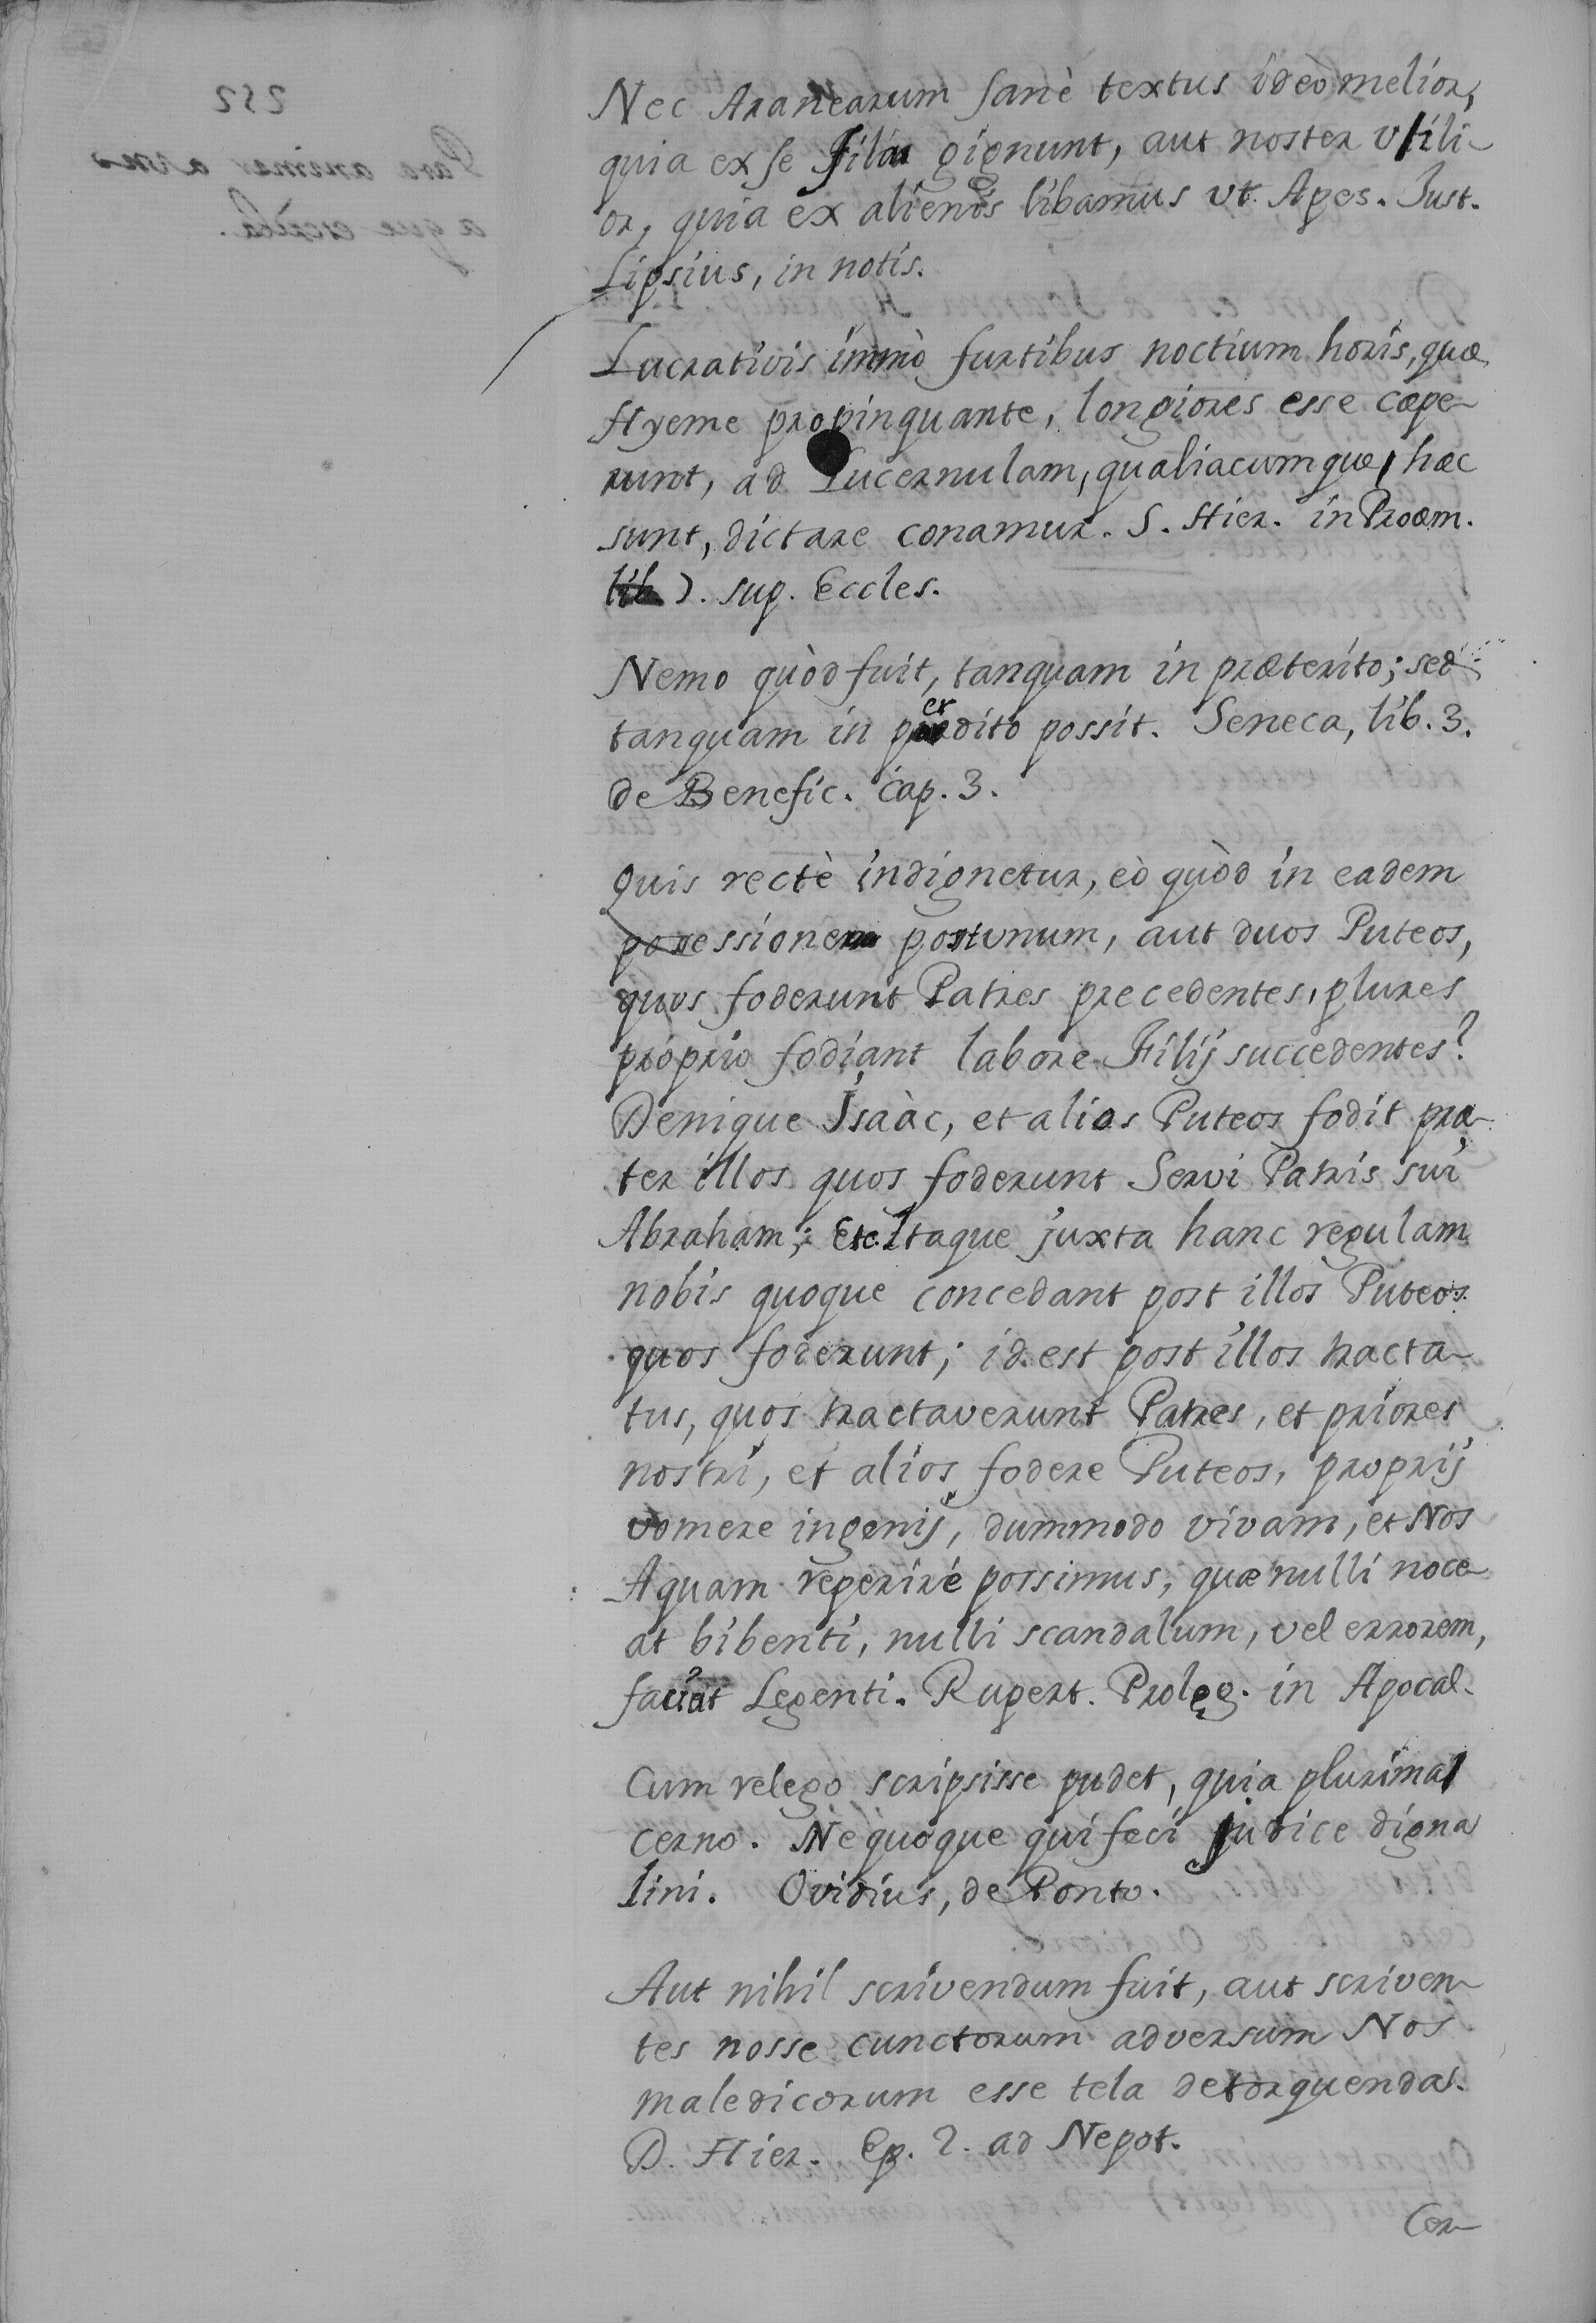 Nec Aranearum sanè textus ideò melior,
quia ex se Fila gignunt, aut noster vtili-
or, quia ex alienis libamus vt Apes. Just.
Lipsius, in notis.
Lucrativis immò furtibus noctium horis, quæ
Hyeme propinquante, longiores esse cæpe-
runt, ad Lucernulam, qualiacumque, hæc
sunt, dictare conamur. S. Hier. in Proæm.
sup. Eccles.
Nemo quòd fuit, tanquam in præterito; sed
tanquam in perdito possit. Seneca, lib. 3.
de Benefic. Cap. 3.
Quis rectè indignetur, eò quòd in eadem
possessione post unum, aut duos Puteos,
quos foderunt Patres precedentes, plures
proprio fodiant labore Filij succedentes?
Denique Isaàc, et alios Puteos fodit præ-
ter illos quos foderunt Servi Patris sui
Abraham; Etc. Itaque juxta hanc regulam
nobis quoque concedant post illos Puteos
quos foderunt; id est post illos tracta-
tus, quos tractaverunt Patres, et priores
nostri, et alios fodere Puteos, proprij
vomere ingenij, dummodo vivam, et Nos
Aquam reperire possimus, quæ nulli noce-
at bibenti, nulli scandalum, vel errorem,
faciat Legenti. Rupert. Proleg. in Apocal.
Cum relego scripsisse pudet, quia plurima
cerno. Me quoque qui feci judice digna
lini. Ovidius, de Ponto.
Aut nihil scrivendum fuit, aut scriven-
tes nosse cunctorum adversum Nos
maledicorum esse tela detorquendas.
D. Hier. Ep. 2. ad Nepot.
Con-